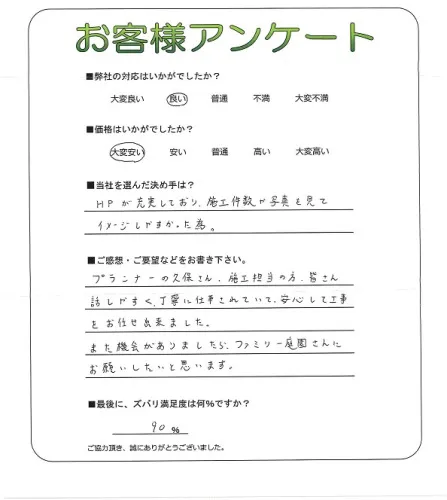 お客様アンケート
■弊社の対応はいかがでしたか？
大変良い 良い 普通 不満 大変不満
■価格はいかがでしたか？
大変安い 安い 普通 高い 大変高い
■当社を選んだ決め手は？
HPが充実しており、施工件数や写真を見て
イメージしやすかった為。
■ご感想・ご要望などをお書き下さい。
プランナーの久保さん、施工担当の方、皆さん
話しやすく、丁寧に仕事されていて、安心して工事
をお任せ出来ました。
また機会がありましたら、ファミリー庭園さんに
お願いしたいと思います。
■最後に、ズバリ満足度は何%ですか？
90 %
ご協力頂き、誠にありがとうございました。